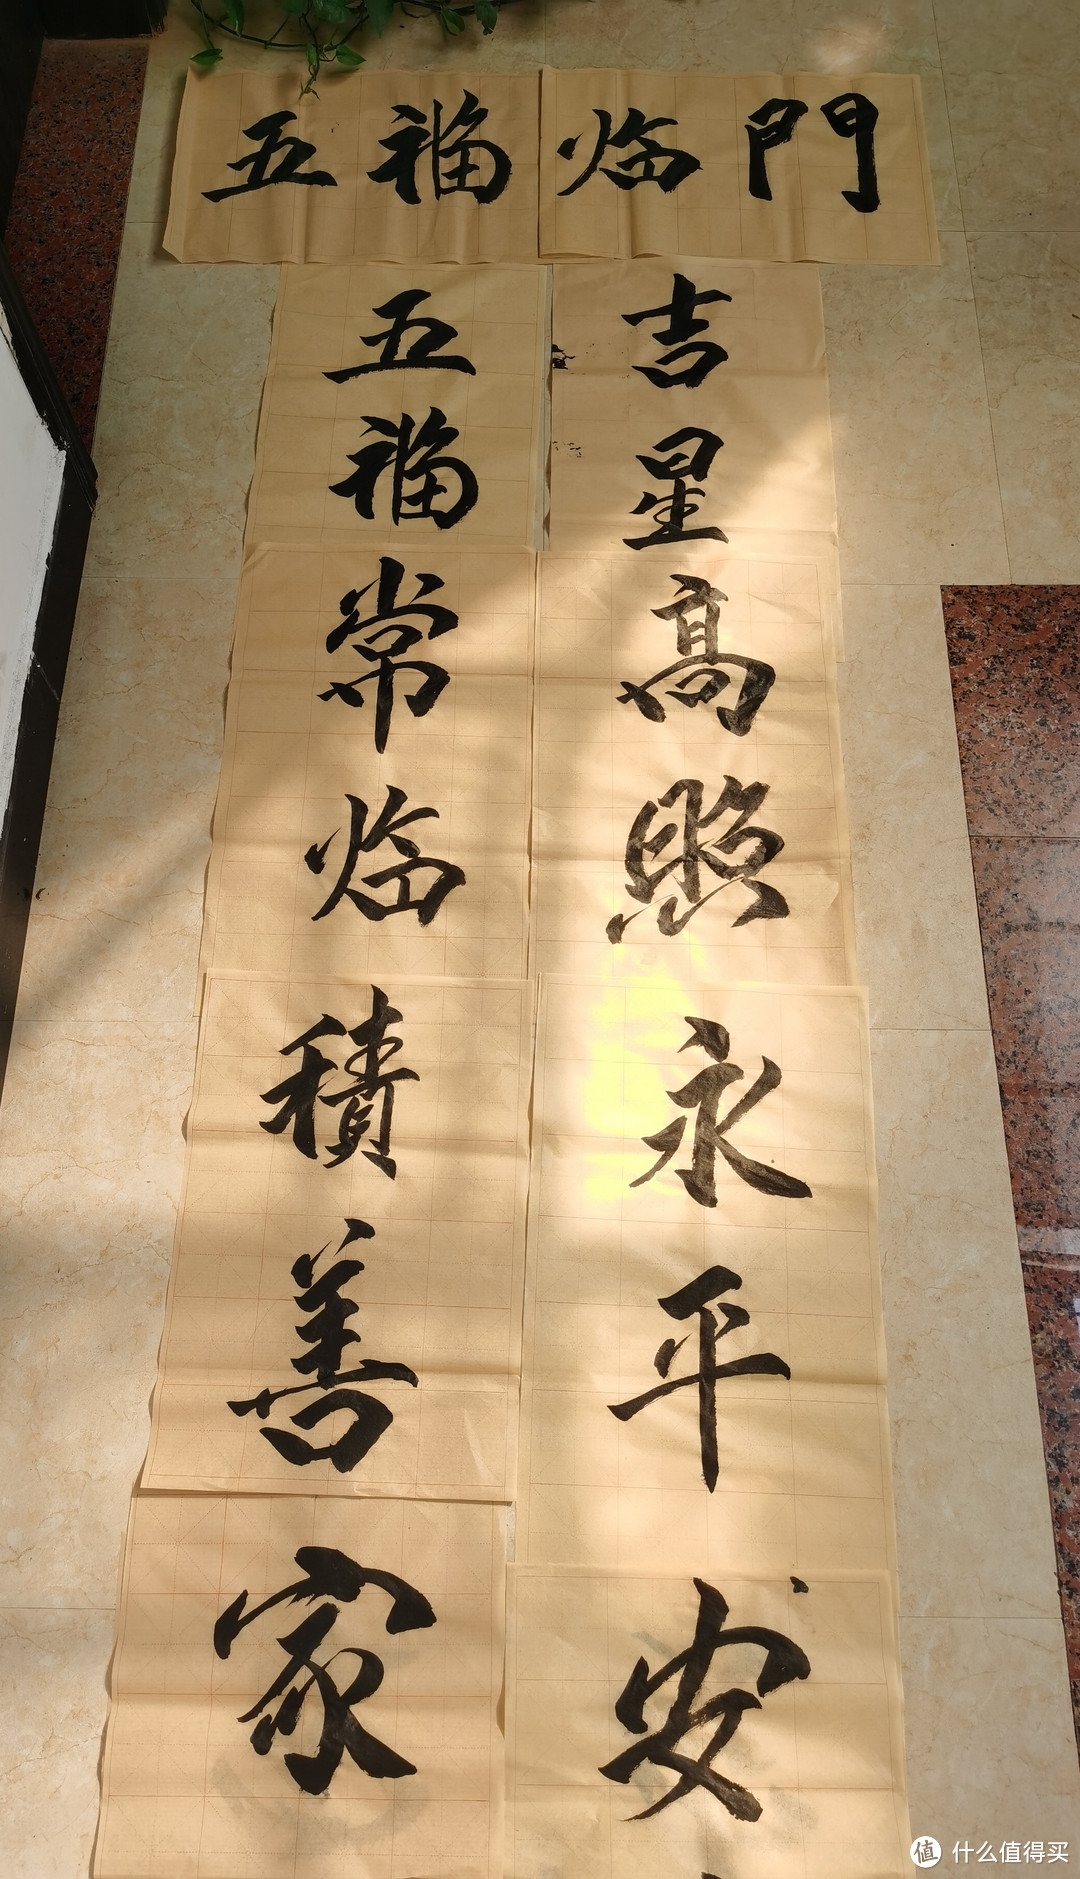 五福临門
吉星高照永平安
五福常临積善家
什么值得买